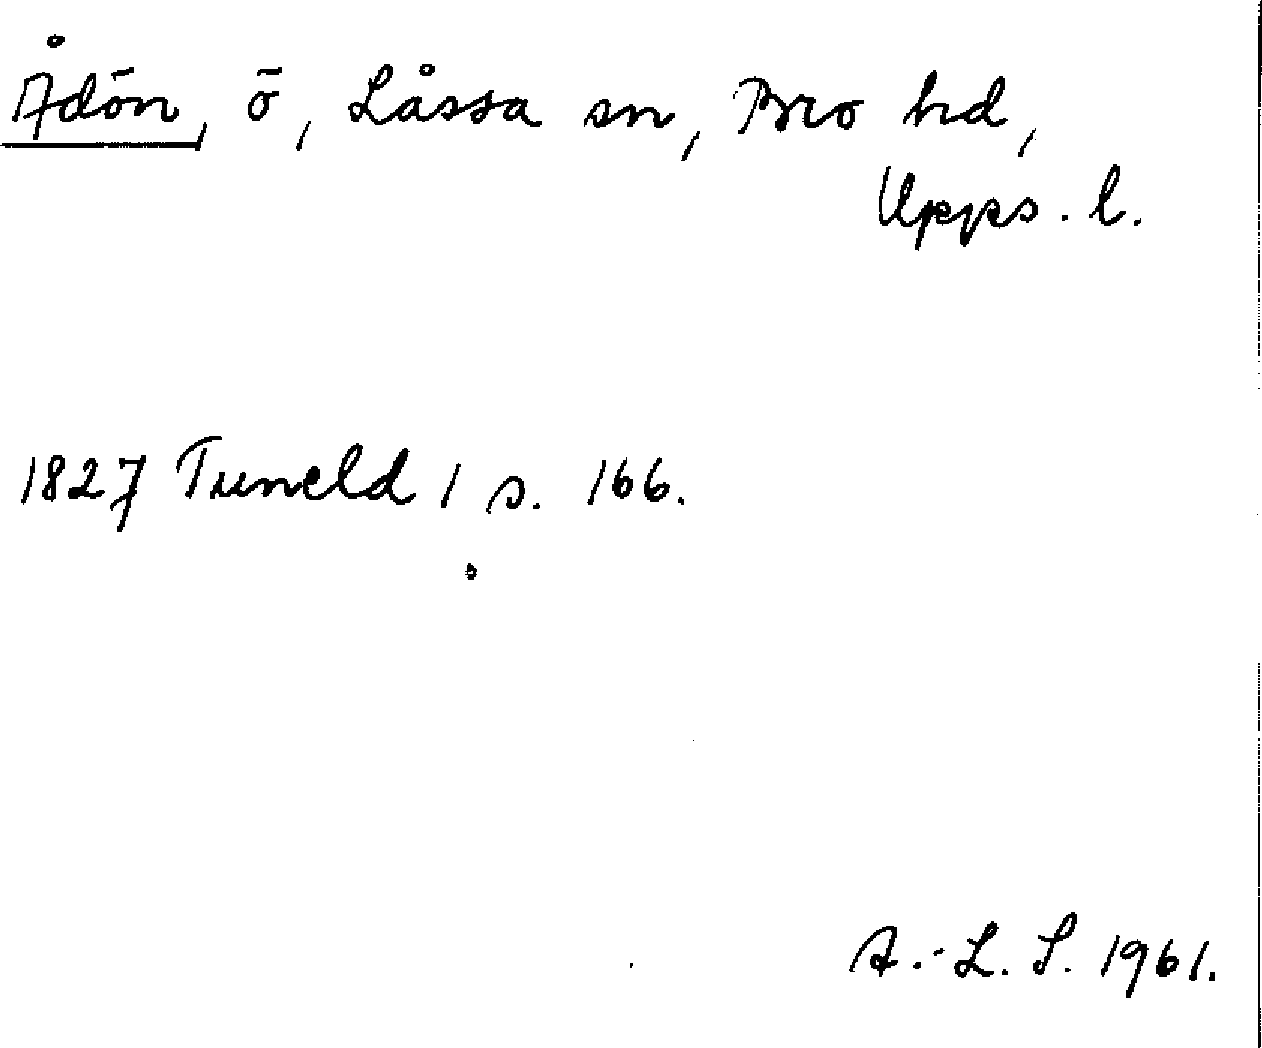 Ådön, ö, Låssa sn, Bro hd,
Upps. l.
1827 Tuneld 1 s. 166.
A.-L. S. 1961.